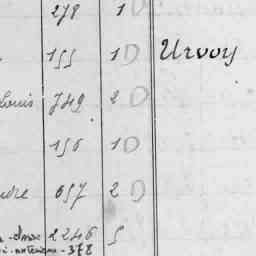 278 1 D
155 1 D Urvoy
Louis 749 2 D
156 1 D
657 2 D
2246 5
378